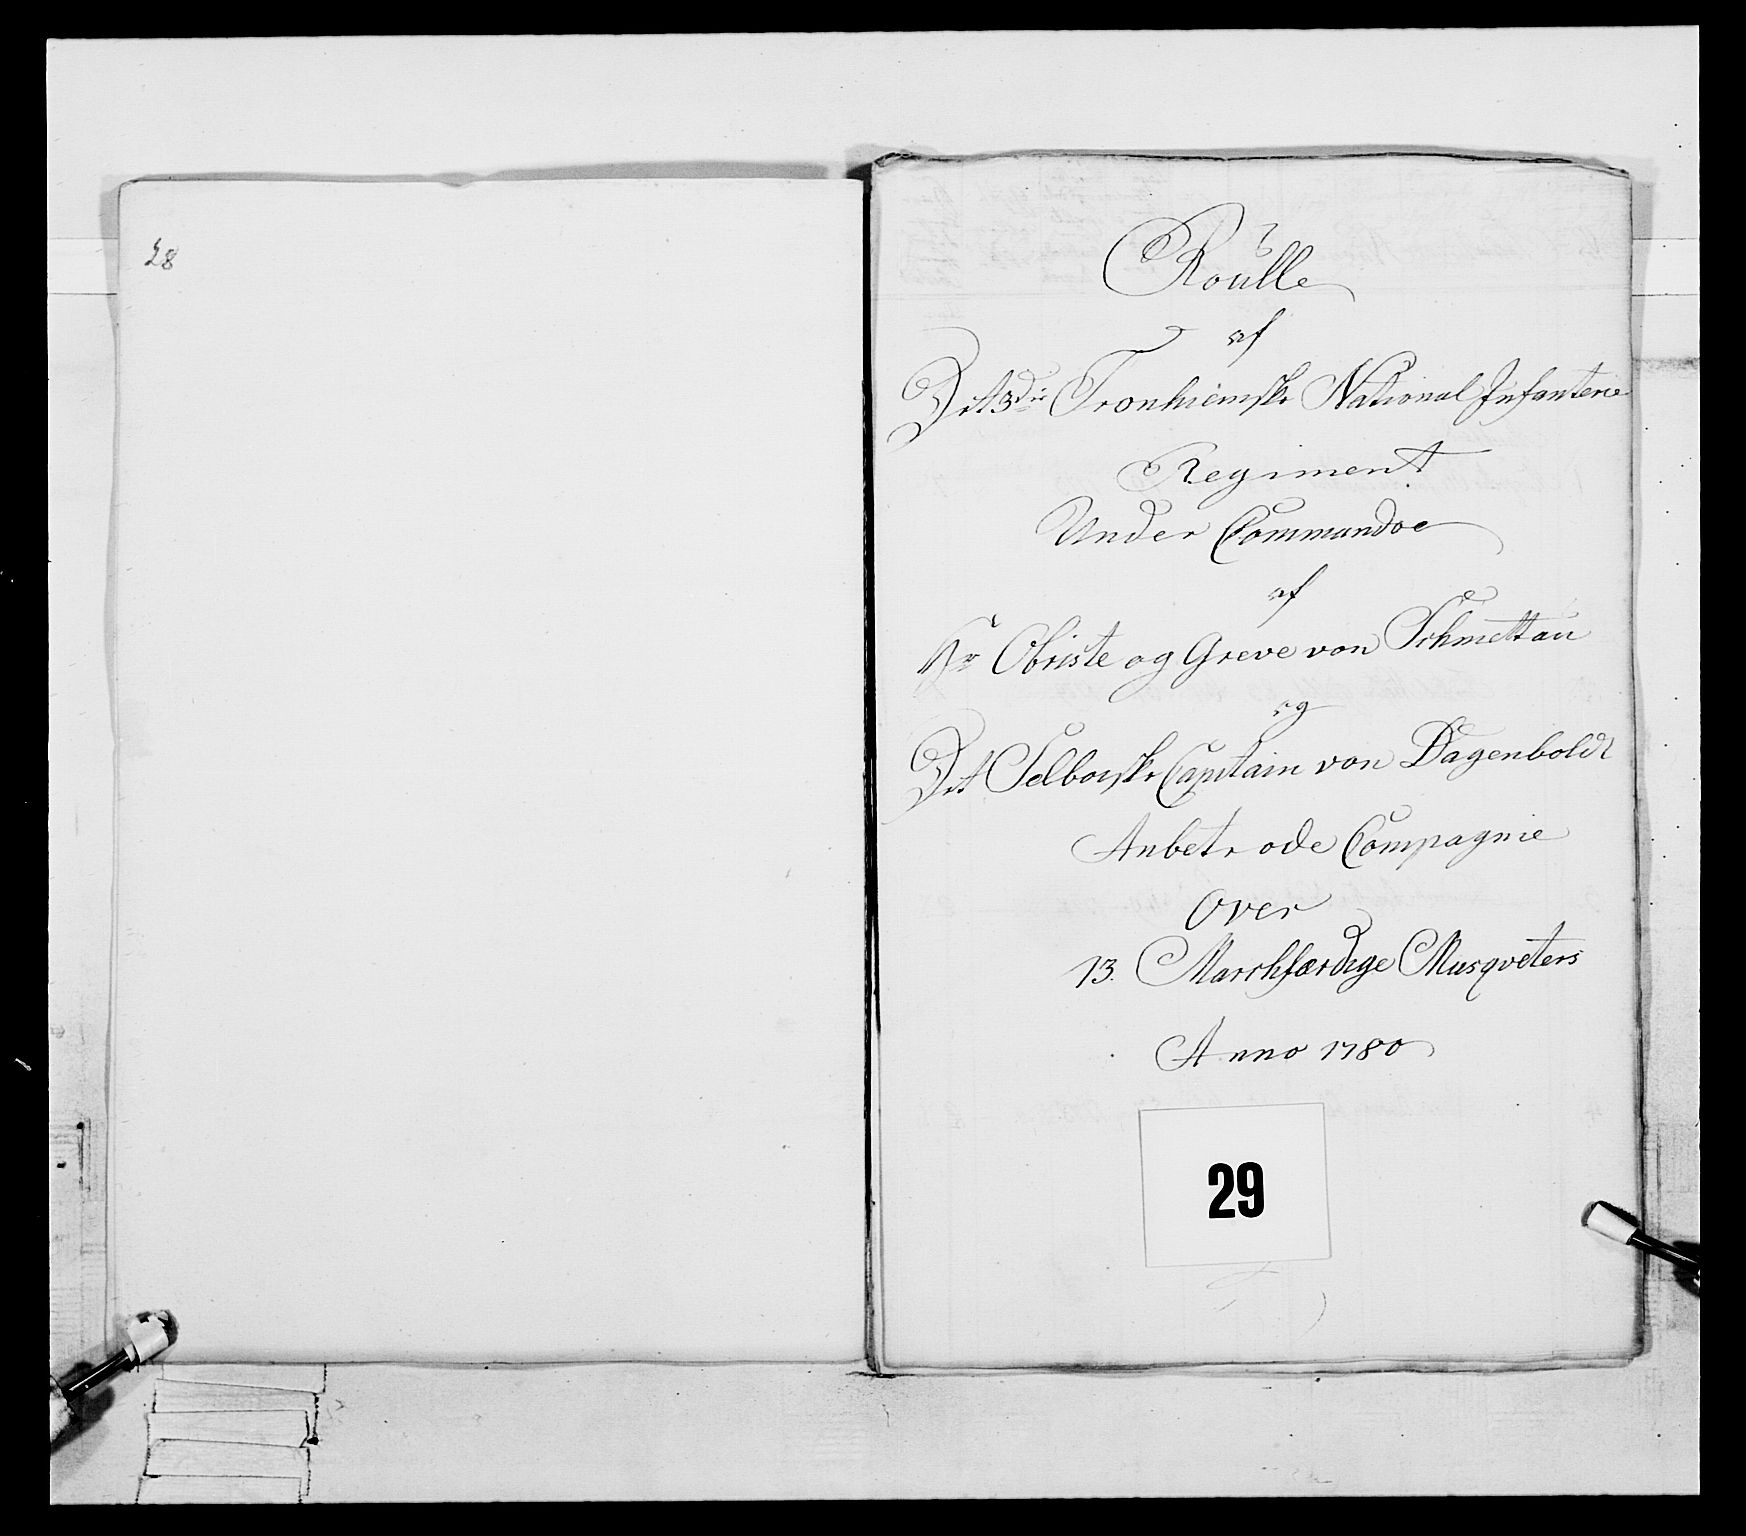 28
Roulle
af
Det 3die Tronhiemske National Infanterie
Regiment
Under Commandoe
af
Hr Obriste og Greve von Schmettau
og
Det Selboeske Capitain von Dagenboldt
Anbetrode Compagnie
Over
13. Marchfærdige Musqveters
Anno 1780
29